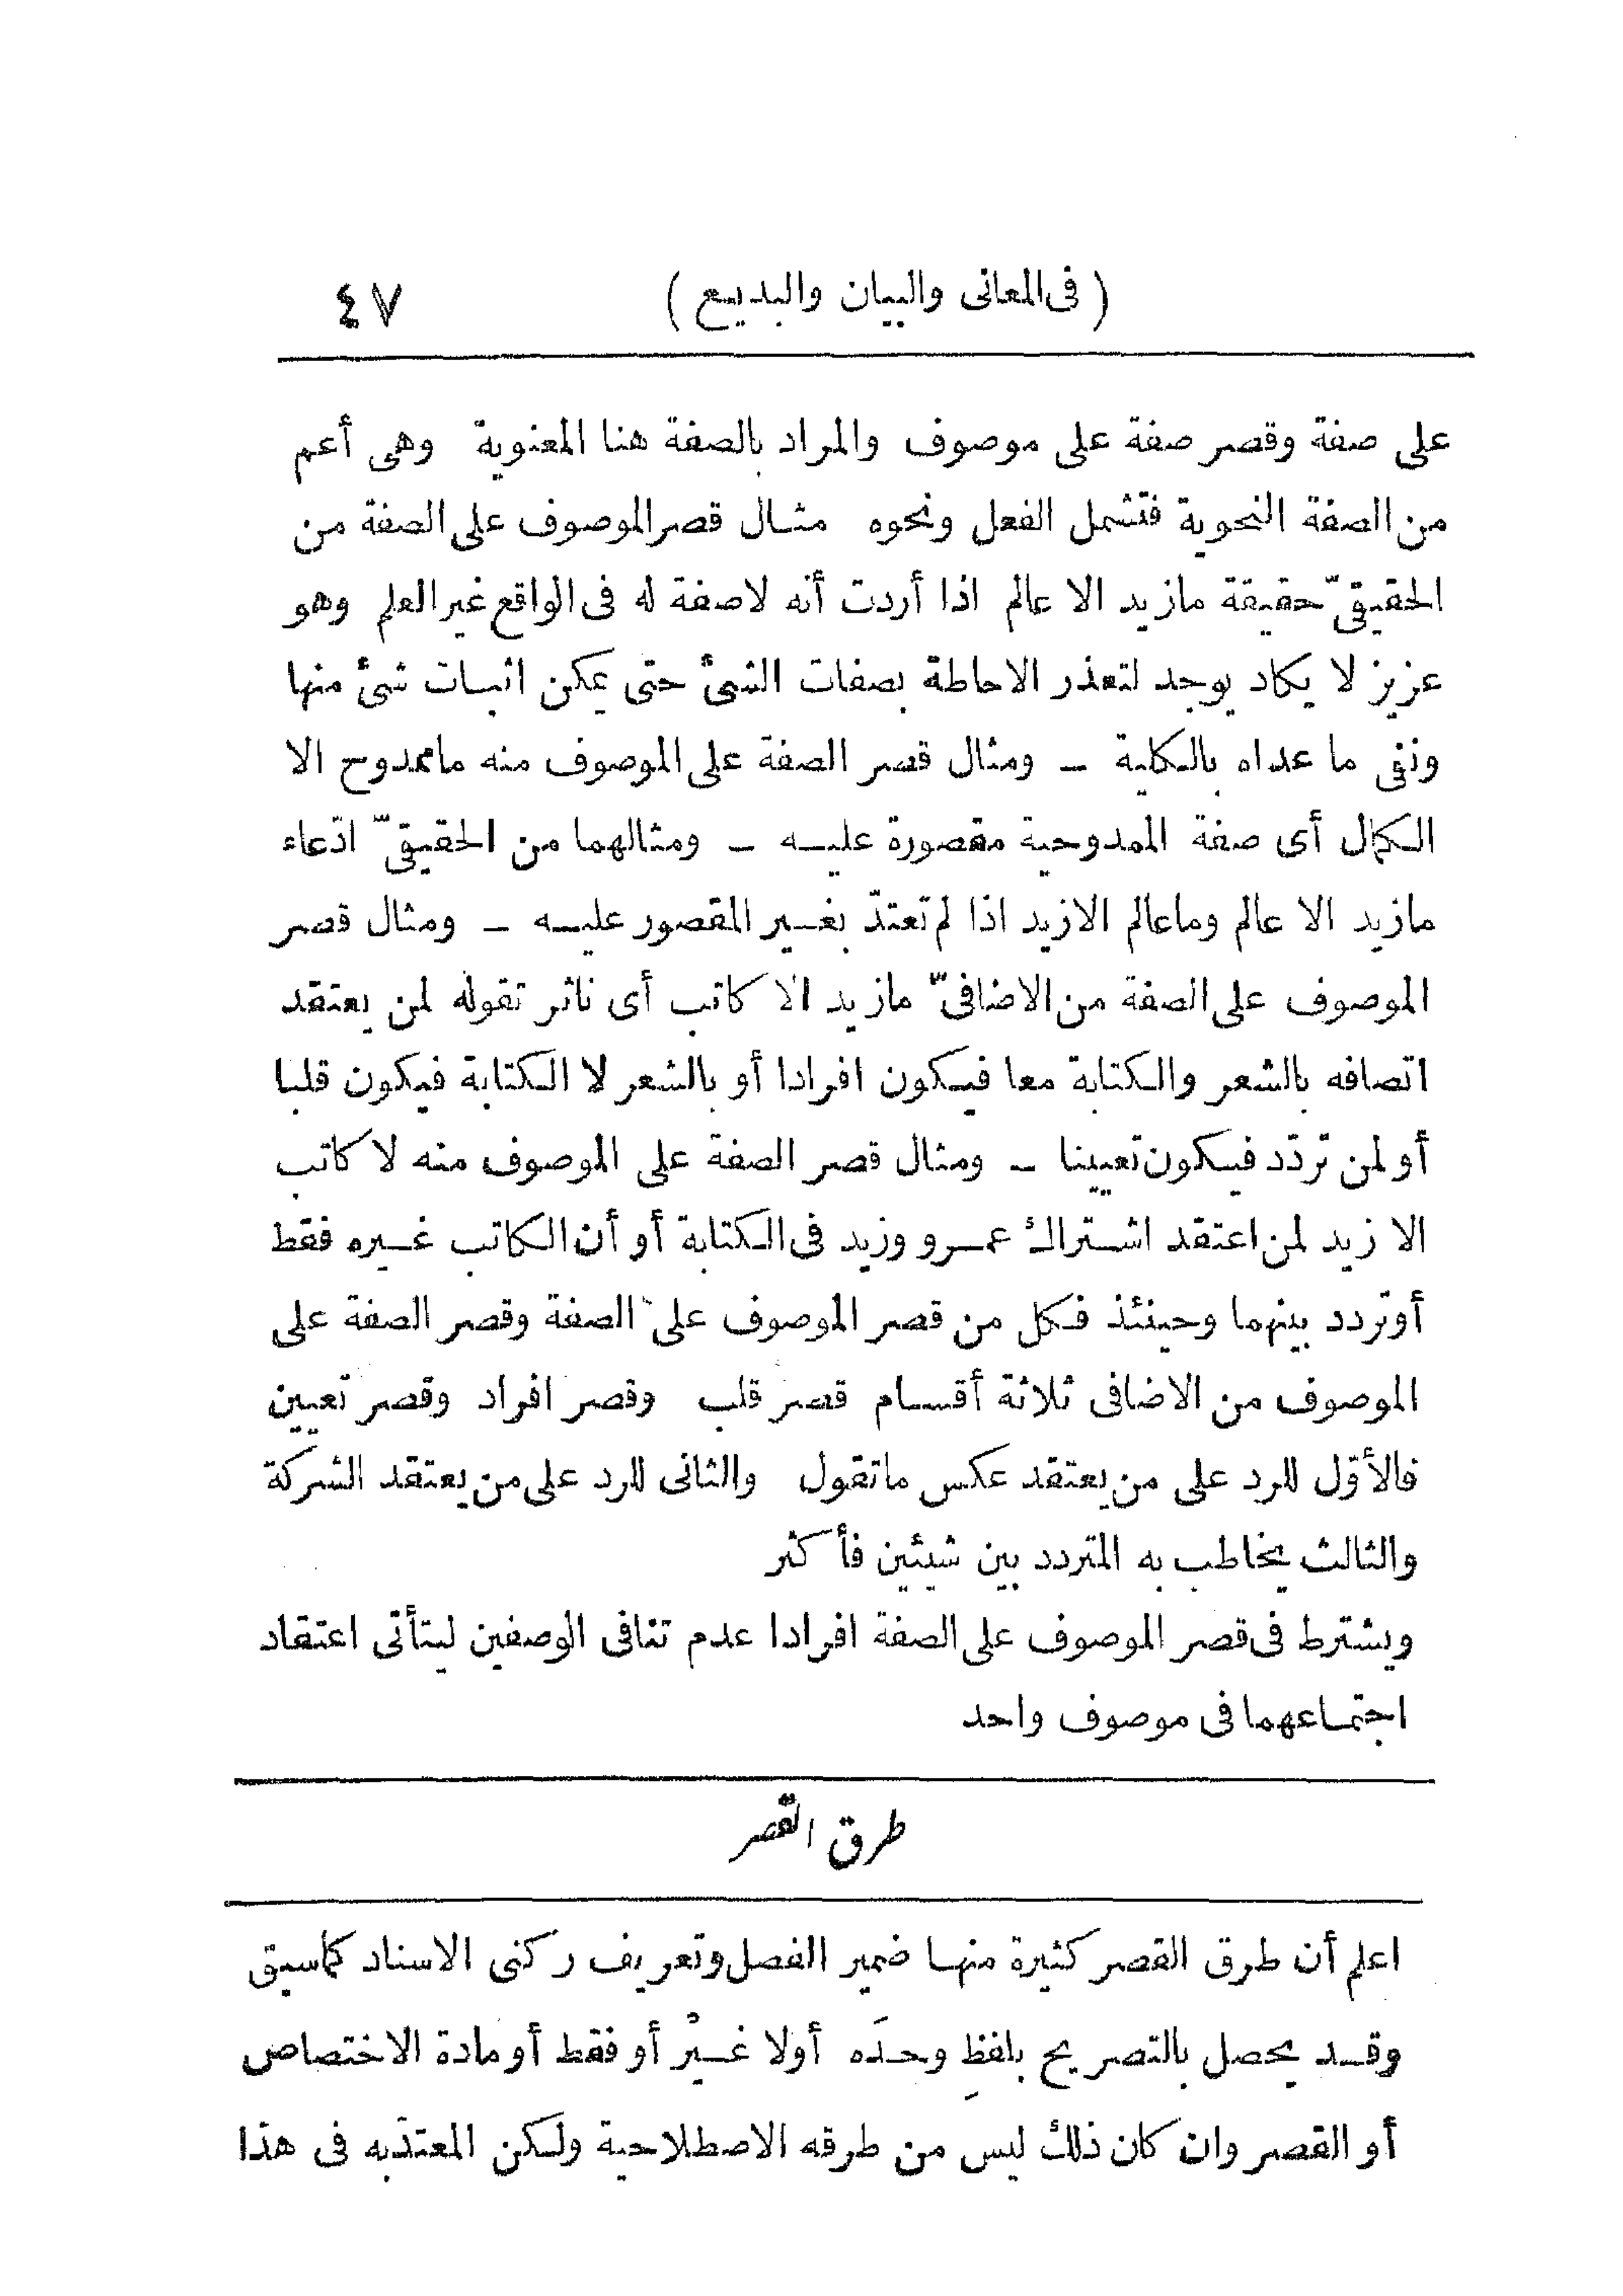 ( فى المعانى والبيان والبديع ) ٤٧
على صفة وقصر صفة على موصوف والمراد بالصفة هنا المعنوية وهى أعم
من الصفة النحوية فتشمل الفعل ونحوه مثال قصر الموصوف على الصفة من
الحقيقىّ حقيقة مازيد الا عالم اذا أردت أنه لاصفة له فى الواقع غير العلم وهو
عزيز لا يكاد يوجد لتعذر الاحاطة بصفات الشئ حتى يمكن اثبات شئ منها
ونفى ما عداه بالكلية ـ ومثال قصر الصفة على الموصوف منه ماممدوح الا
الكمال أى صفة الممدوحية مقصورة عليه ـ ومثالهما من الحقيقىّ ادّعاء
مازيد الا عالم وماعالم الازيد اذا لم تعتدّ بغير المقصور عليه ـ ومثال قصر
الموصوف على الصفة من الاضافىّ مازيد الا كاتب أى ناثر تقوله لمن يعتقد
اتصافه بالشعر والكتابة معا فيكون افرادا أو بالشعر لا الكتابة فيكون قلبا
أو لمن تردّد فيكون تعيينا ـ ومثال قصر الصفة على الموصوف منه لا كاتب
الا زيد لمن اعتقد اشتراك عمرو وزيد فى الكتابة أو أن الكاتب غيره فقط
أوتردد بينهما وحينئذ فكل من قصر الموصوف على الصفة وقصر الصفة على
الموصوف من الاضافى ثلاثة أقسام قصر قلب وقصر افراد وقصر تعيين
فالأوّل للرد على من يعتقد عكس ماتقول والثانى للرد على من يعتقد الشركة
والثالث يخاطب به المتردد بين شيئين فأكثر
ويشترط فى قصر الموصوف على الصفة افرادا عدم تنافى الوصفين ليتأتى اعتقاد
اجتماعهما فى موصوف واحد
طرق القصر
اعلم أن طرق القصر كثيرة منها ضمير الفصل وتعريف ركنى الاسناد كماسبق
وقد يحصل بالتصريح بلفظِ وحدَه أولا غيْر أو فقط أو مادة الاختصاص
أو القصر وان كان ذلك ليس من طرقه الاصطلاحية ولكن المعتدّبه فى هذا